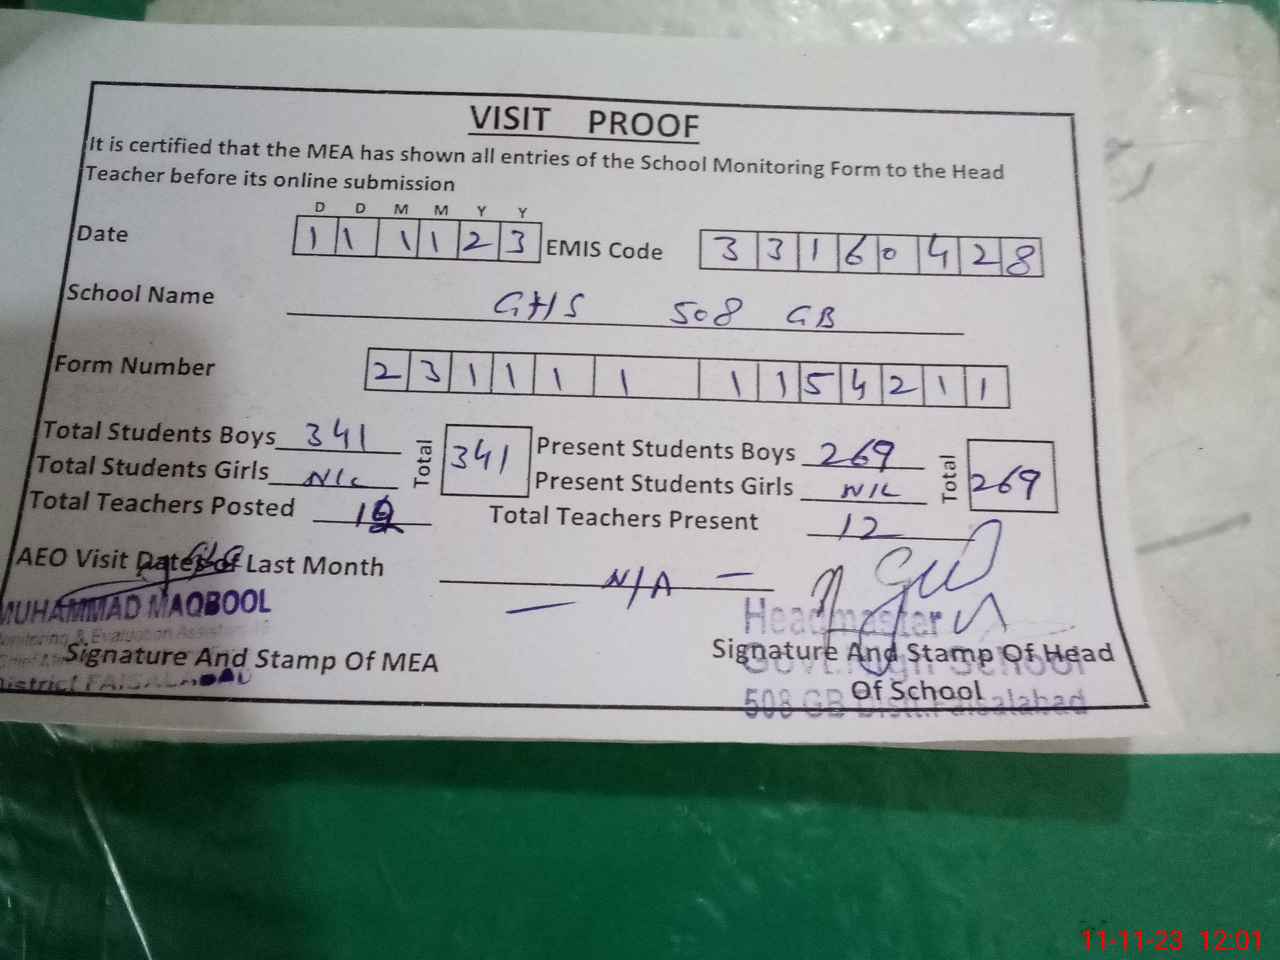 VISIT PROOF
It is certified that the MEA has shown all entries of the School Monitoring Form to the Head
Teacher before its online submission
D D M M Y Y
Date 1 1 1 1 2 3 EMIS Code 3 3 1 6 0 4 2 8
School Name GHS 508 GB
Form Number 2 3 1 1 1 1 1 1 5 4 2 1 1
Total Students Boys 341 Total 341 Present Students Boys 269 Total 269
Total Students Girls NIL Present Students Girls NIL
Total Teachers Posted Total Teachers Present 12
AEO Visit Dates of Last Month N/A
MUHAMMAD MAQBOOL
Monitoring & Evaluation Assistant
District FAISALABAD
Signature And Stamp Of MEA
Headmaster
Govt. High School
508 GB Distt. Faisalabad
Signature And Stamp Of Head
Of School
11-11-23 12:01